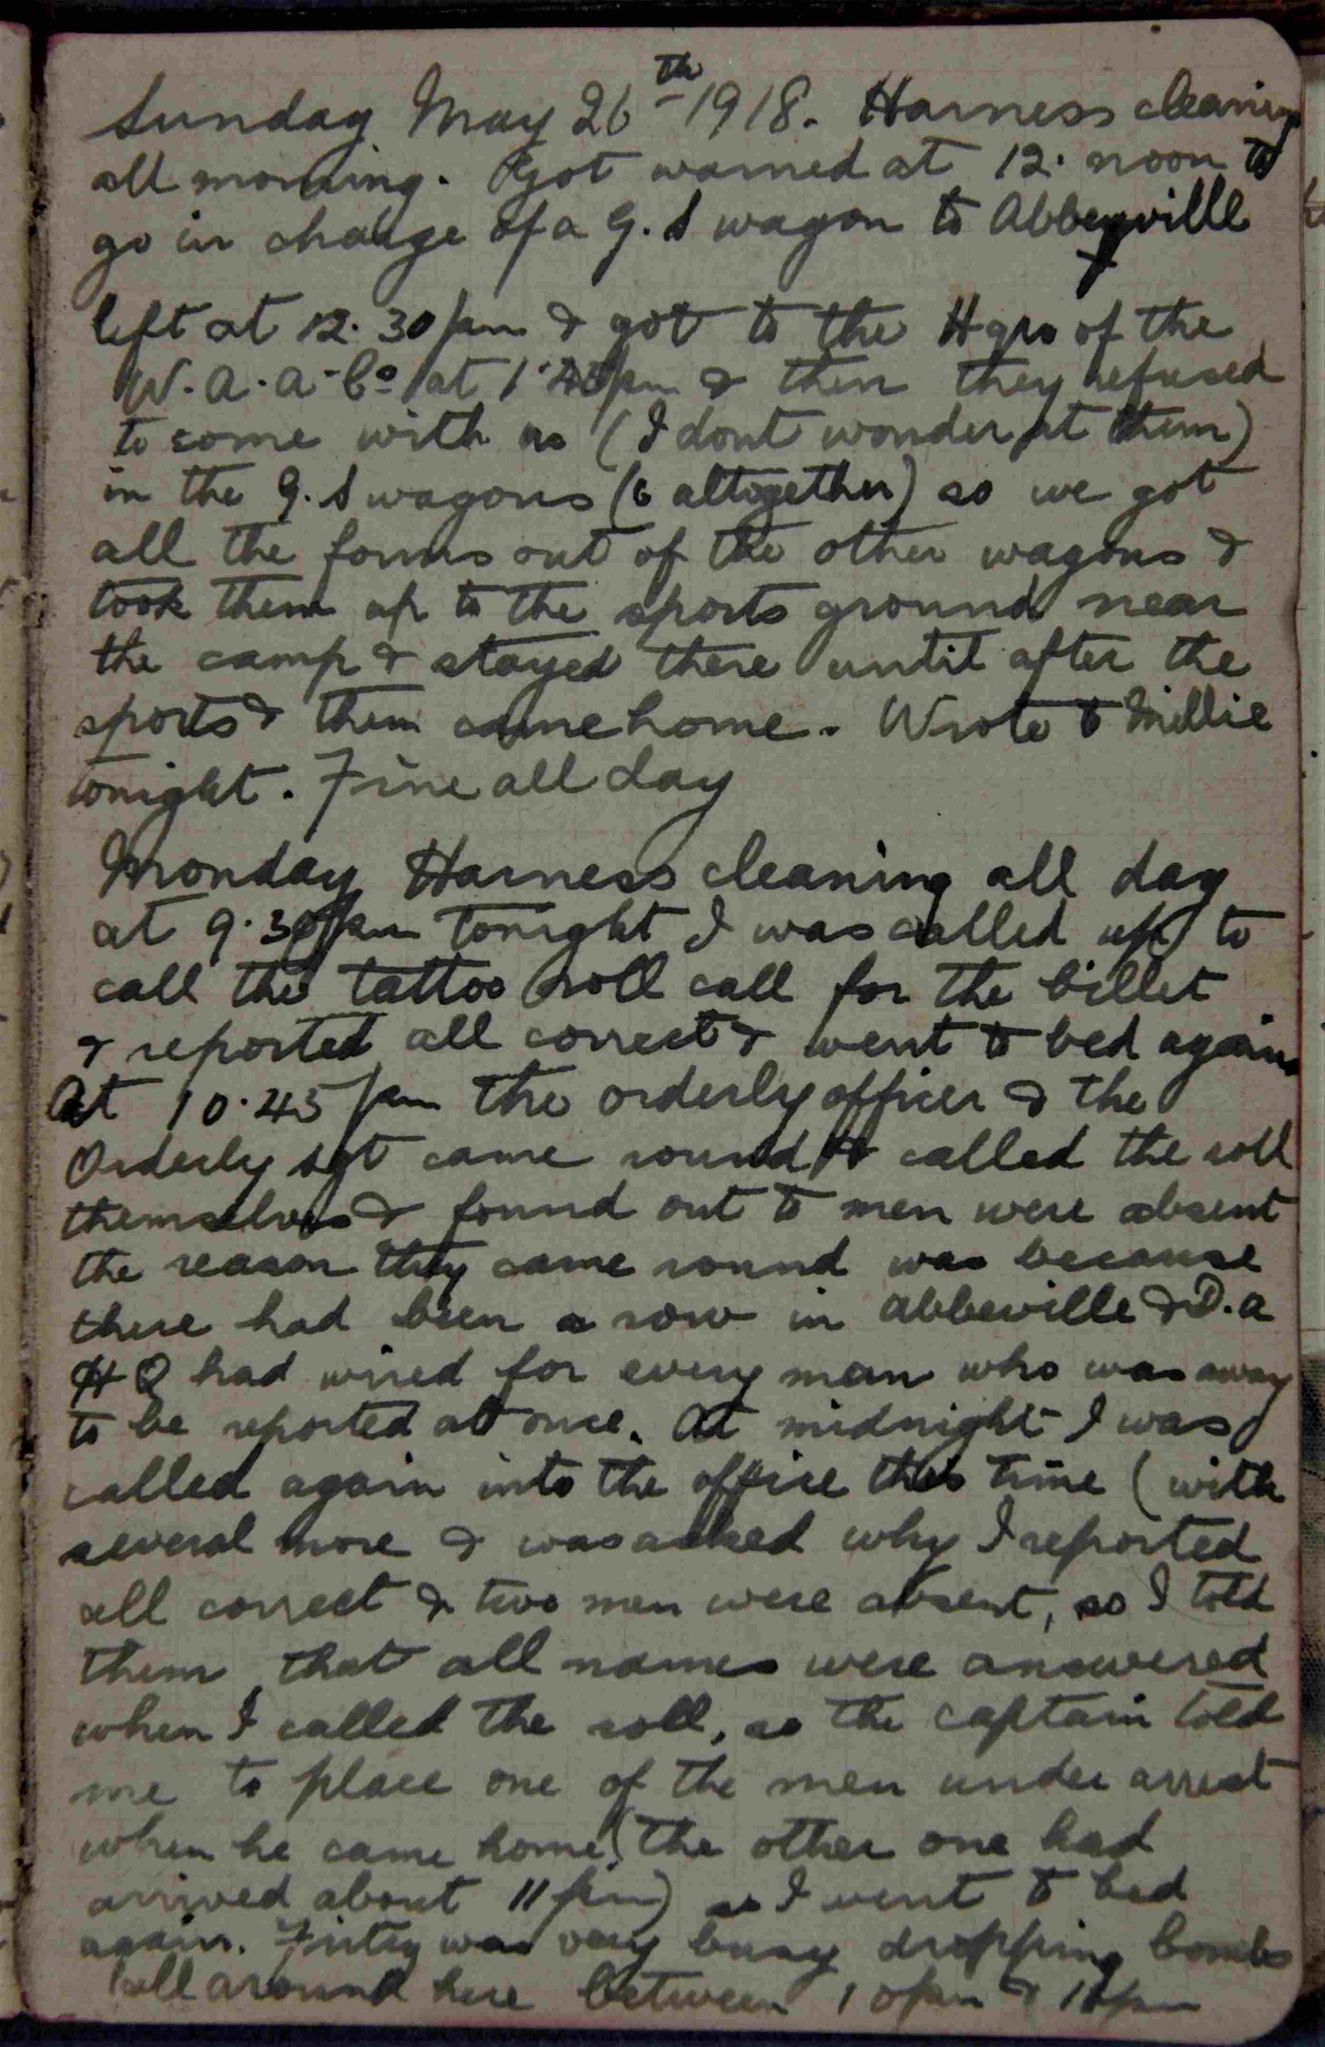 Sunday May 26th 1918. Harness cleaning
all morning. Got warned at 12. noon to
go in charge of a G. S wagon to Abbeyville
left at 12.30 pm & got to the Hqrs of the
W. A. A. Co at 1.45 pm & then they refused
to come with us (I dont wonder at them)
in the G. S wagons (6 altogether) so we got
all the forms out of the other wagons &
took them up to the sports ground near
the camp & stayed there until after the
sports & then came home. Wrote to Millie
tonight. Fine all day
Monday Harness cleaning all day
at 9.30 pm tonight I was called up to
call the tattoo roll call for the billet
& reported all correct & went to bed again
At 10.45 pm the orderly officer & the
Orderly sgt came round & called the roll
themselves & found out to men were absent
the reason they came round was because
there had been a row in Abbeville & D. A
H Q had wired for every man who was away
to be reported at once. At midnight I was
called again into the office this time (with
several more & was asked why I reported
all correct & two men were absent, so I told
them that all names were answered
when I called the roll, so the captain told
me to place one of the men under arrest
when he came home (the other one had
arrived about 11 pm) so I went to bed
again. Fritzy was very busy dropping bombs
all around here between 10 pm &